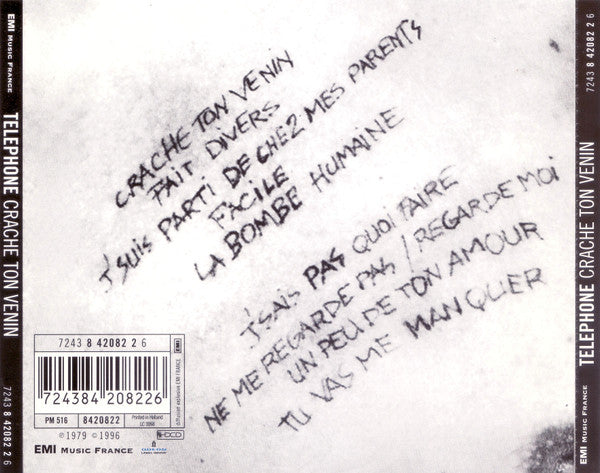 EMI MUSIC FRANCE
TELEPHONE CRACHE TON VENIN
7243 8 42082 2 6
CRACHE TON VENIN
FAIT DIVERS
J'SUIS PARTI DE CHEZ MES PARENTS
FACILE
LA BOMBE HUMAINE
J'SAIS PAS QUOI FAIRE
NE ME REGARDE PAS / REGARDE MOI
UN PEU DE TON AMOUR
TU VAS ME MANQUER
7243 8 42082 2 6
724384208226
PM 516
8420822
Printed in Holland
EMI
©1979 ©1996
EMI MUSIC FRANCE
7243 8 42082 2 6
TELEPHONE CRACHE TON VENIN
EMI MUSIC FRANCE